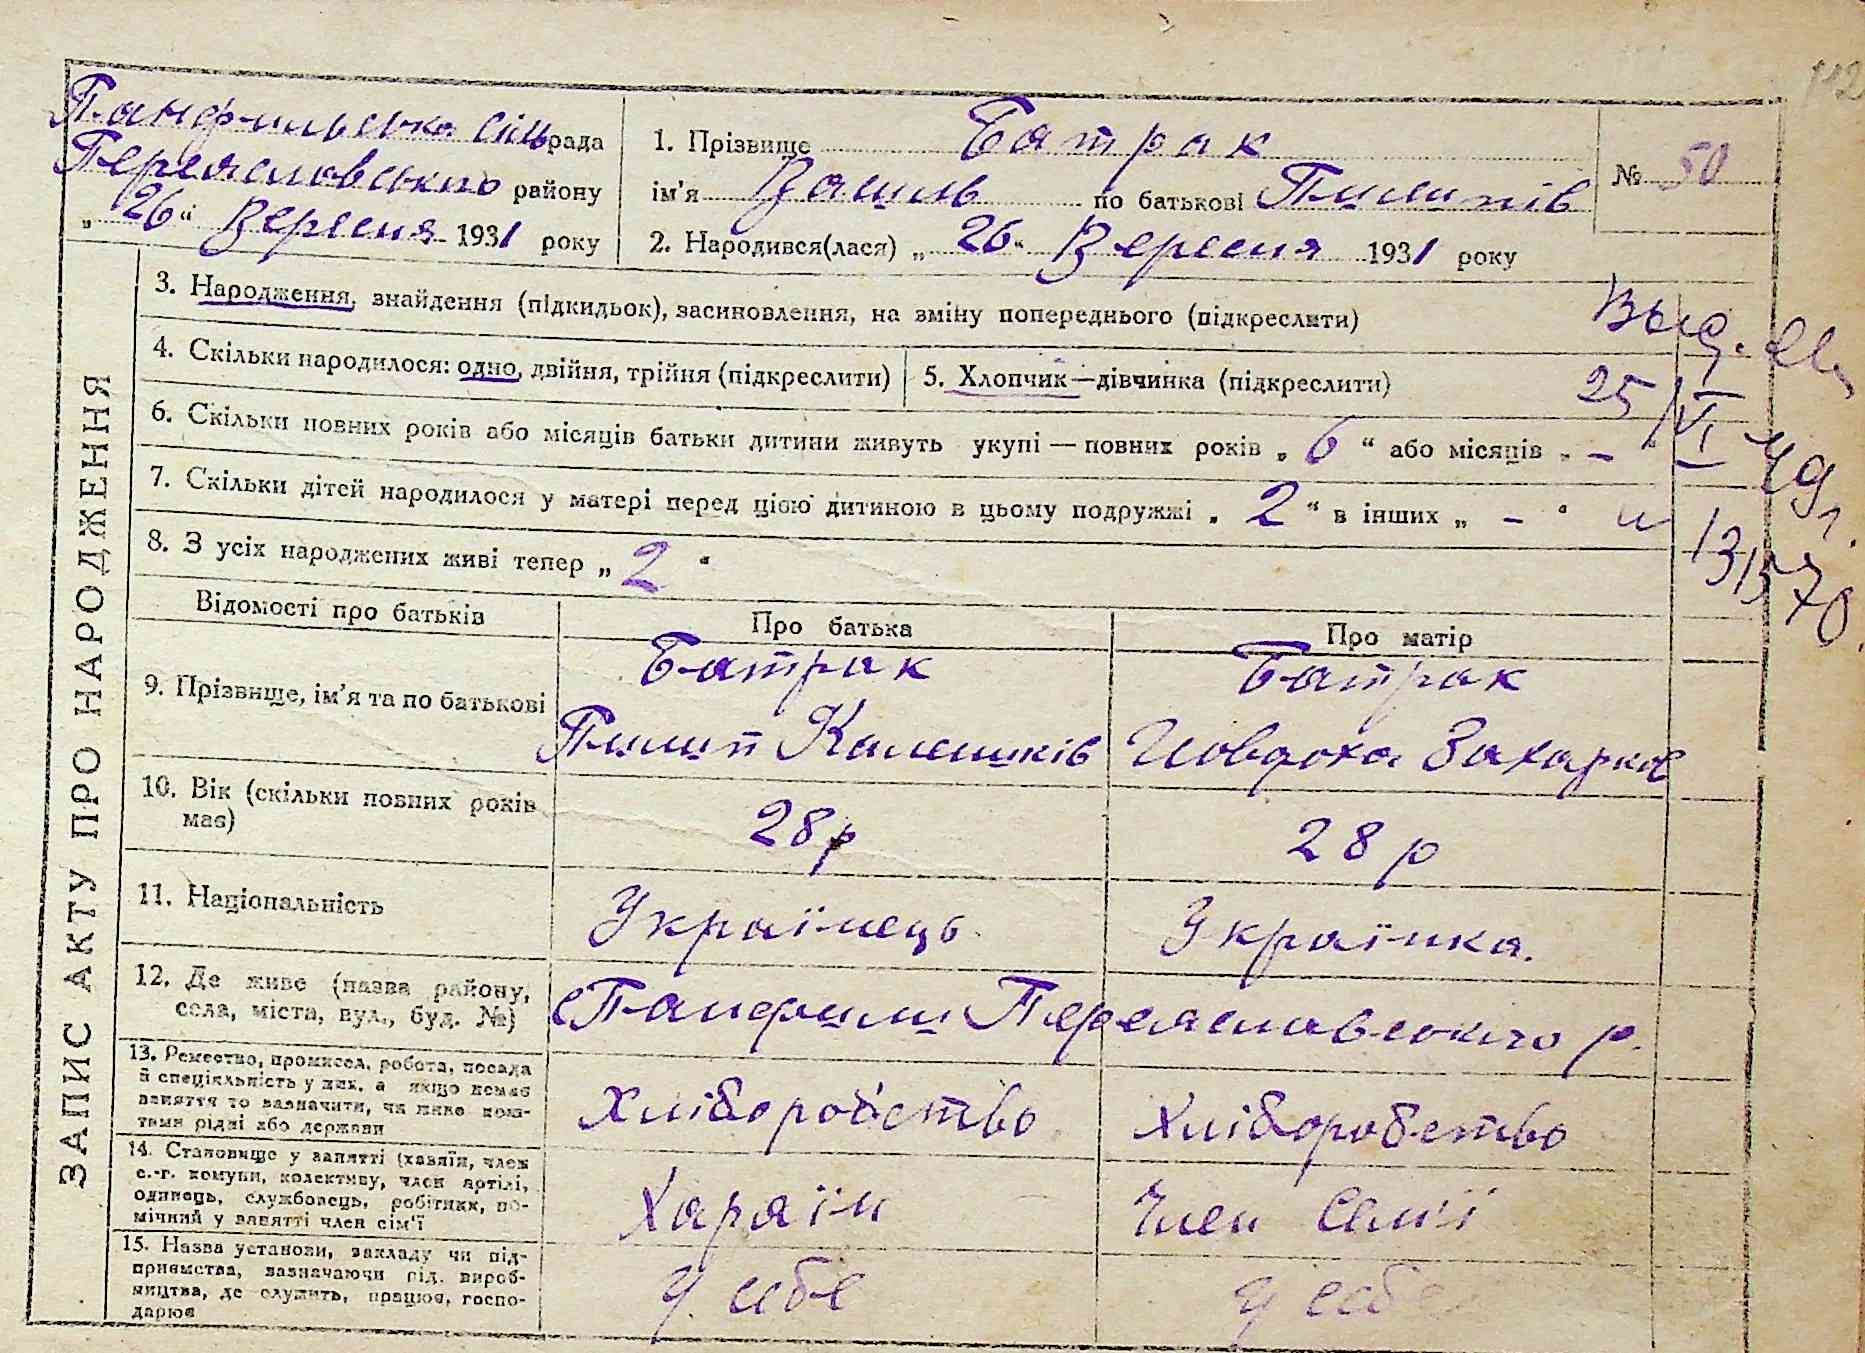 112
Панфильська сільрада
Переяславського району
„ 26 “ Вересня 1931 року
1. Прізвище Батрак
ім’я Василь по батькові Пилипів
2. Народився(лася) „ 26 “ Вересня 1931 року
№ 50
ЗАПИС АКТУ ПРО НАРОДЖЕННЯ
3. Народження, знайдення (підкидьок), засиновлення, на зміну попереднього (підкреслити)
4. Скільки народилося: одно, двійня, трійня (підкреслити)
5. Хлопчик—дівчинка (підкреслити)
6. Скільки повних років або місяців батьки дитини живуть укупі — повних років „ 6 “ або місяців „ – “
7. Скільки дітей народилося у матері перед цією дитиною в цьому подружжі „ 2 “ в інших „ – “
8. З усіх народжених живі тепер „ 2 “
25/VI 49г.
131570
Відомості про батьків
Про батька
Про матір
9. Прізвище, ім’я та по батькові
Батрак
Пилип
Батрак
Йовдоха
10. Вік (скільки повних років
має)
28р
28р
11. Національність
Українець
Українка.
12. Де живе (назва району,
села, міста, вул., буд. №)
с Панфили Переяславського р.
13. Ремество, промисел, робота, посада
й спеціяльність у них, а якщо немає
заняття то зазначити, чи живе кош-
тами рідні або держави
Хліборобство
Хліборобство
14. Становище у занятті (хазяїн, член
с.-г. комуни, колективу, член артілі,
одинець, службовець, робітник, по-
мічний у занятті член сім’ї
Хазяїн
Член Семії
15. Назва установи, закладу чи під-
приємства, зазначаючи від. вироб-
ництва, де служить, працює, госпо-
дарює
у себе
у себе